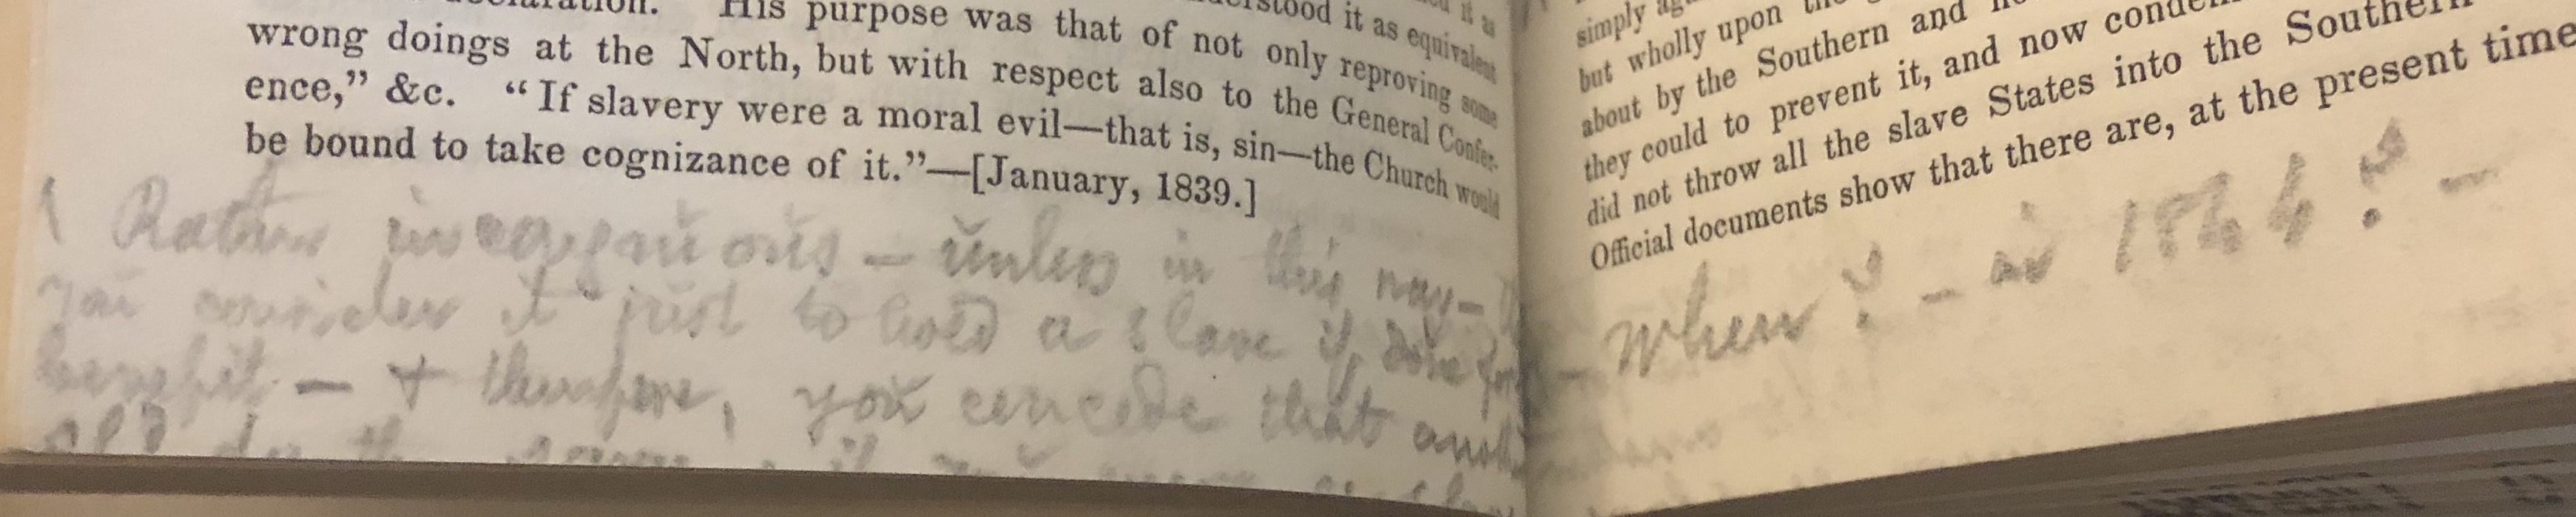 His purpose was that of not only reproving some
wrong doings at the North, but with respect also to the General Confer-
ence,” &c. “If slavery were a moral evil—that is, sin—the Church would
be bound to take cognizance of it.”—[January, 1839.]
Rather incongruous – unless in this way–
you consider it just to hold a slave if, done for
benefit – + therefore, you concede that
simply
but wholly upon
about by the Southern and
they could to prevent it, and now
did not throw all the slave States into the Southern
Official documents show that there are, at the present time
– When? – in 1864? –